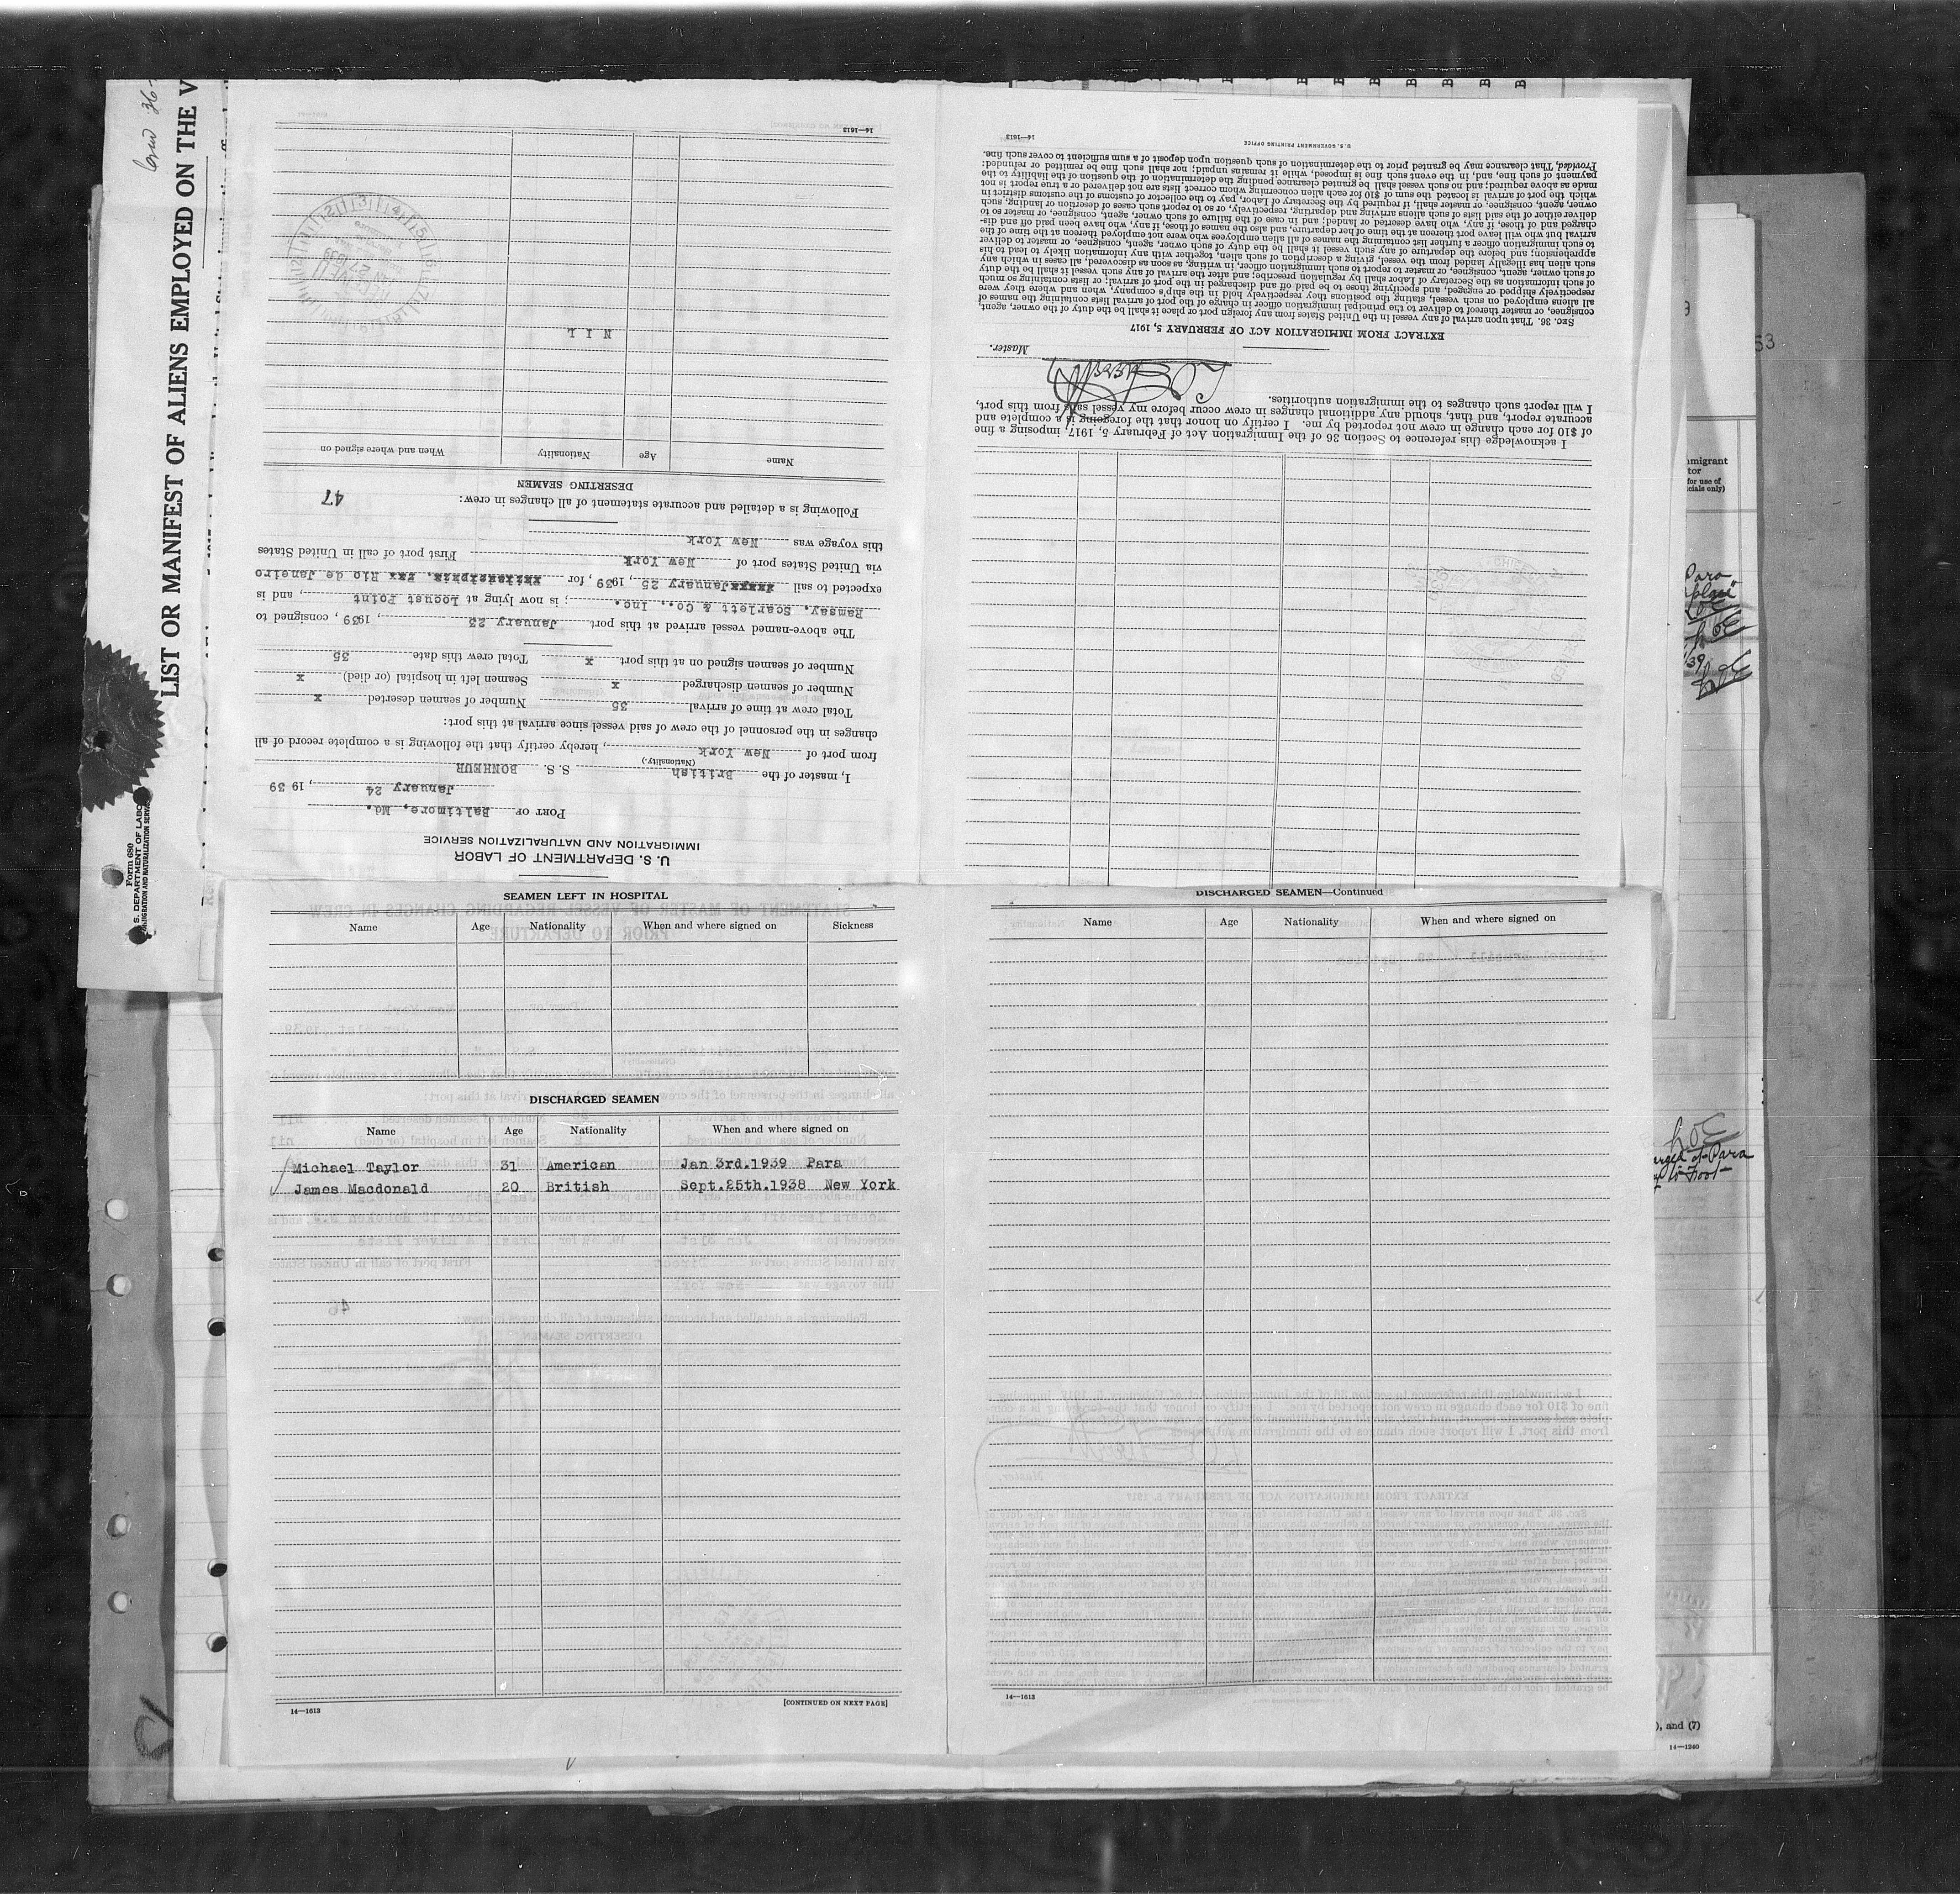 LIST OR MANIFEST OF ALIENS EMPLOYED ON THE V
Form 680
S. DEPARTMENT OF LABOR
IMMIGRATION AND NATURALIZATION SERVICE
U. S. DEPARTMENT OF LABOR
IMMIGRATION AND NATURALIZATION SERVICE
PORT OF Baltimore, Md.
January 24, 1939
I, master of the British S. S. BONHEUR
(Nationality.)
from port of New York, hereby certify that the following is a complete record of all
changes in the personnel of the crew of said vessel since arrival at this port:
Total crew at time of arrival 35 Number of seamen deserted x
Number of seamen discharged x Seamen left in hospital (or died) x
Number of seamen signed on at this port x Total crew this date 35
The above-named vessel arrived at this port January 23, 1939, consigned to
Ramsay, Scarlett & Co., Inc.; is now lying at Locust Point, and is
expected to sail January 25, 1939, for Rio de Janeiro
via United States port of New York First port of call in United States
this voyage was New York
Following is a detailed and accurate statement of all changes in crew:
47
DESERTING SEAMEN
Name Age Nationality When and where signed on
N I L
14—1613
I acknowledge this reference to Section 36 of the Immigration Act of February 5, 1917 imposing a fine
of $10 for each change in crew not reported by me. I certify on honor that the foregoing is a complete and
accurate report, and that, should any additional changes in crew occur before my vessel sails from this port,
I will report such changes to the immigration authorities.
Master.
EXTRACT FROM IMMIGRATION ACT OF FEBRUARY 5, 1917
SEC. 36. That upon arrival of any vessel in the United States from any foreign port or place it shall be the duty of the owner, agent
consignee, or master thereof to deliver to the principal immigration officer in charge of the port of arrival lists containing the names of
all aliens employed on such vessel, stating the positions they respectively hold in the ship's company, when and where they were
respectively shipped or engaged, and specifying those to be paid off and discharged in the port of arrival; or lists containing so much
of such information as the Secretary of Labor shall by regulation prescribe; and after the arrival of any such vessel it shall be the duty
of such owner, agent, consignee, or master to report to such immigration officer, in writing, as soon as discovered, all cases in which any
such alien has illegally landed from the vessel, giving a description of such alien, together with any information likely to lead to his
apprehension; and before the departure of any such vessel it shall be the duty of such owner, agent, consignee, or master to deliver
to such immigration officer a further list containing the names of all alien employees who were not employed thereon at the time of the
arrival but who will leave port thereon at the time of her departure, and also the names of those, if any, who have been paid off and dis-
charged and of those, if any, who have deserted or landed; and in case of the failure of such owner, agent, consignee, or master so to
deliver either of the said lists of such aliens arriving and departing, respectively, or so to report such cases of desertion or landing, such
owner, agent, consignee, or master shall, if required by the Secretary of Labor, pay to the collector of customs of the customs district in
which the port of arrival is located the sum of $10 for each alien concerning whom correct lists are not delivered or a true report is not
made as above required; and no such vessel shall be granted clearance pending the determination of the question of the liability to the
payment of such fine, and, in the event such fine is imposed, while it remains unpaid; nor shall such fine be remitted or refunded:
Provided, That clearance may be granted prior to the determination of such question upon deposit of a sum sufficient to cover such fine.
U. S. GOVERNMENT PRINTING OFFICE
14—1613
SEAMEN LEFT IN HOSPITAL
Name Age Nationality When and where signed on Sickness
DISCHARGED SEAMEN
Name Age Nationality When and where signed on
Michael Taylor 31 American Jan 3rd.1939 Para
James Macdonald 20 British Sept.25th.1938 New York
14—1613
[CONTINUED ON NEXT PAGE]
DISCHARGED SEAMEN—Continued
Name Age Nationality When and where signed on
14—1613
mmigrant
tor
for use of
icials only)
Para
), and (7)
14—1240